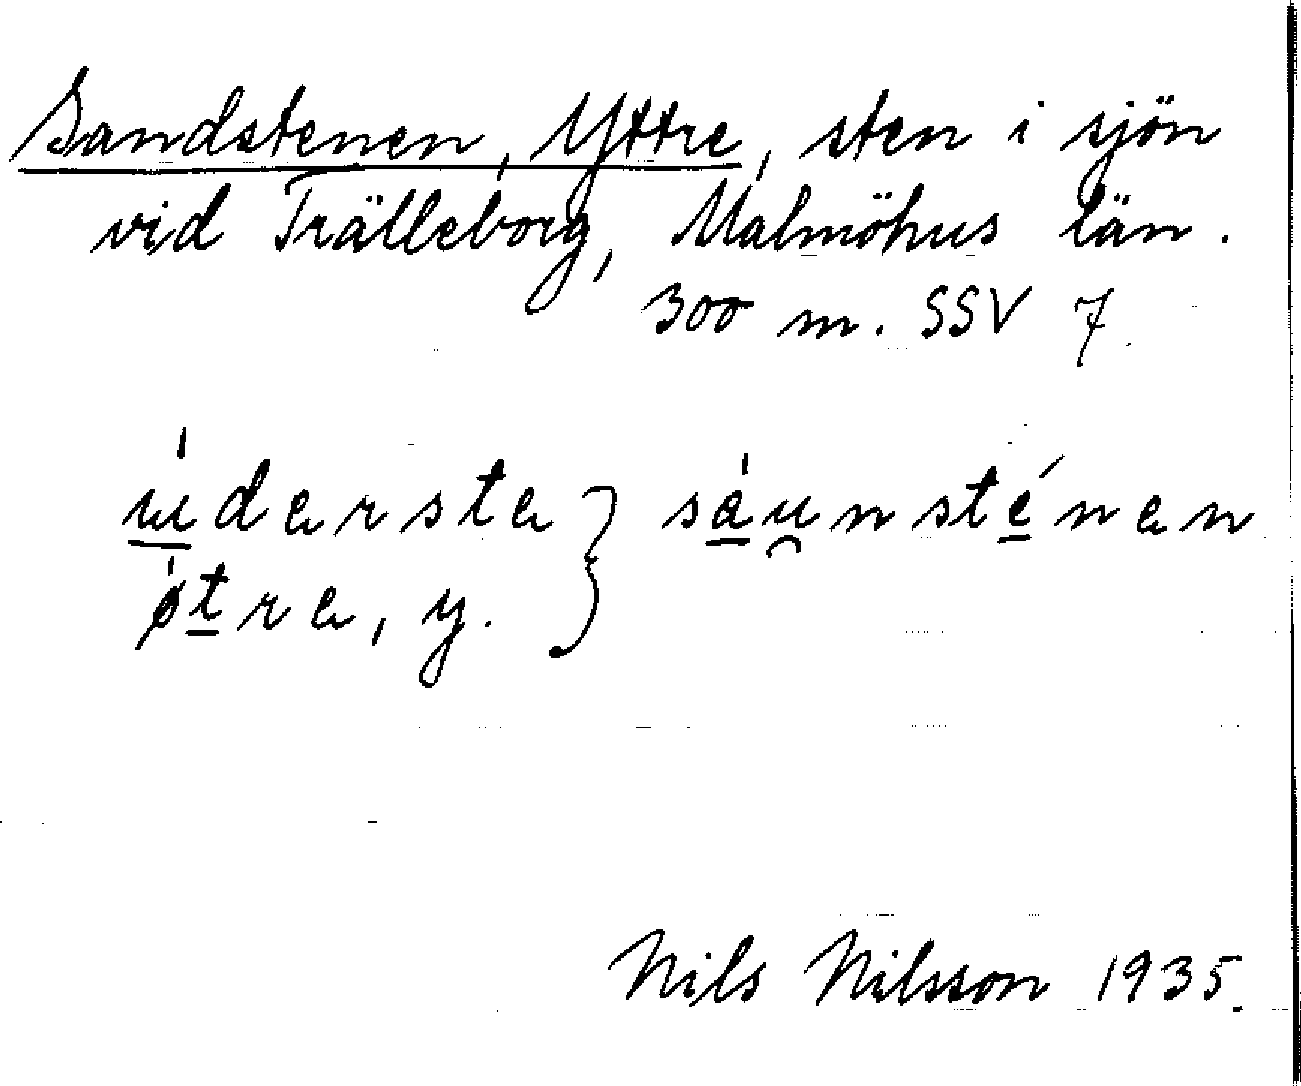 Sandstenen, Yttre, sten i sjön
vid Trälleborg, Malmöhus län.
300 m. SSV 7.
ɯ́derste } sáu̯nsténen
ǿtre, y.
Nils Nilsson 1935.